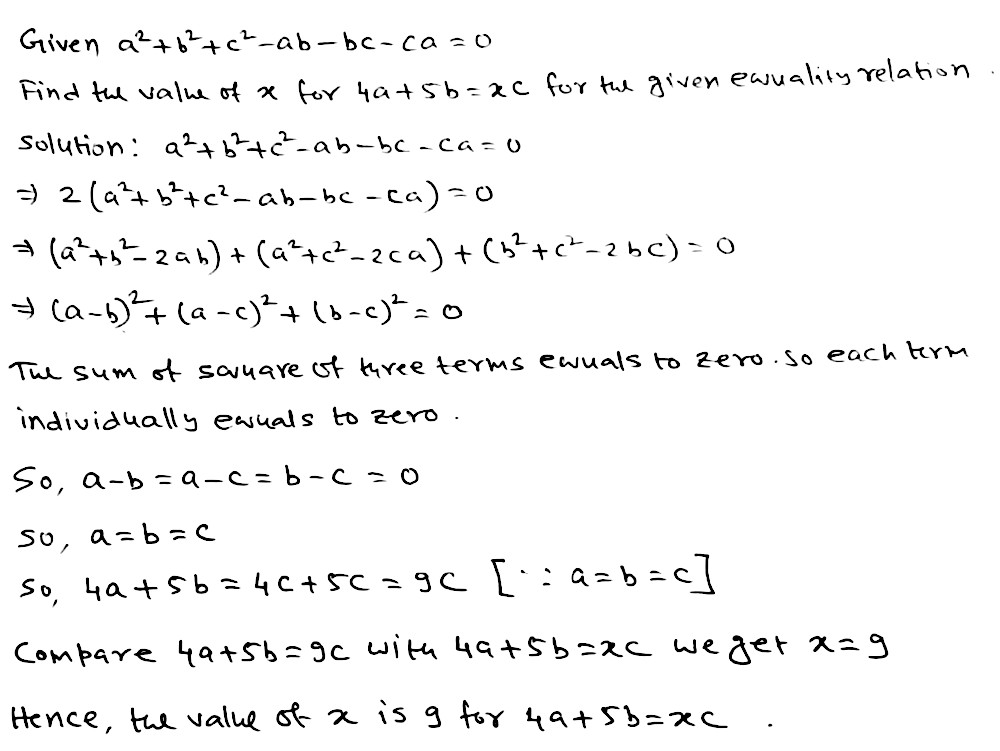 Given a²+b²+c²-ab-bc-ca=0
Find the value of x for 4a+5b=xc for the given equality relation.
Solution: a²+b²+c²-ab-bc-ca=0
⇒ 2(a²+b²+c²-ab-bc-ca)=0
⇒ (a²+b²-2ab)+(a²+c²-2ca)+(b²+c²-2bc)=0
⇒ (a-b)²+(a-c)²+(b-c)²=0
The sum of square of three terms equals to zero. So each term
individually equals to zero.
So, a-b=a-c=b-c=0
So, a=b=c
So, 4a+5b=4c+5c=9c [∵ a=b=c]
Compare 4a+5b=9c with 4a+5b=xc we get x=9
Hence, the value of x is 9 for 4a+5b=xc.